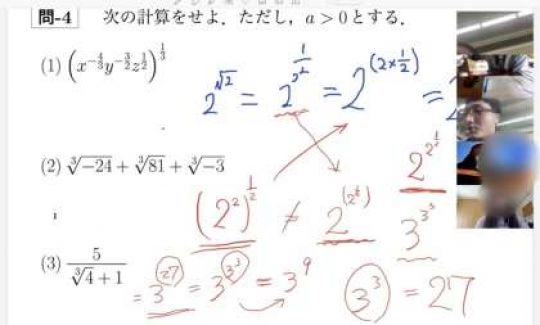 問-4 次の計算をせよ.ただし,a > 0とする.
(1) (x^{-\frac{4}{3}}y^{-\frac{3}{2}}z^{\frac{1}{2}})^{\frac{1}{3}}
2^{\sqrt{2}} = 2^{2^{\frac{1}{2}}} = 2^{(2×\frac{1}{2})} =
(2) \sqrt[3]{-24} + \sqrt[3]{81} + \sqrt[3]{-3}
2^{2^{\frac{1}{2}}}
(2^2)^{\frac{1}{2}} ≠ 2^{(2^{\frac{1}{2}})}
3^{3^3}
(3) \frac{5}{\sqrt[3]{4}+1}
= 3^{27} = 3^{3^3} = 3^9 3^3 = 27